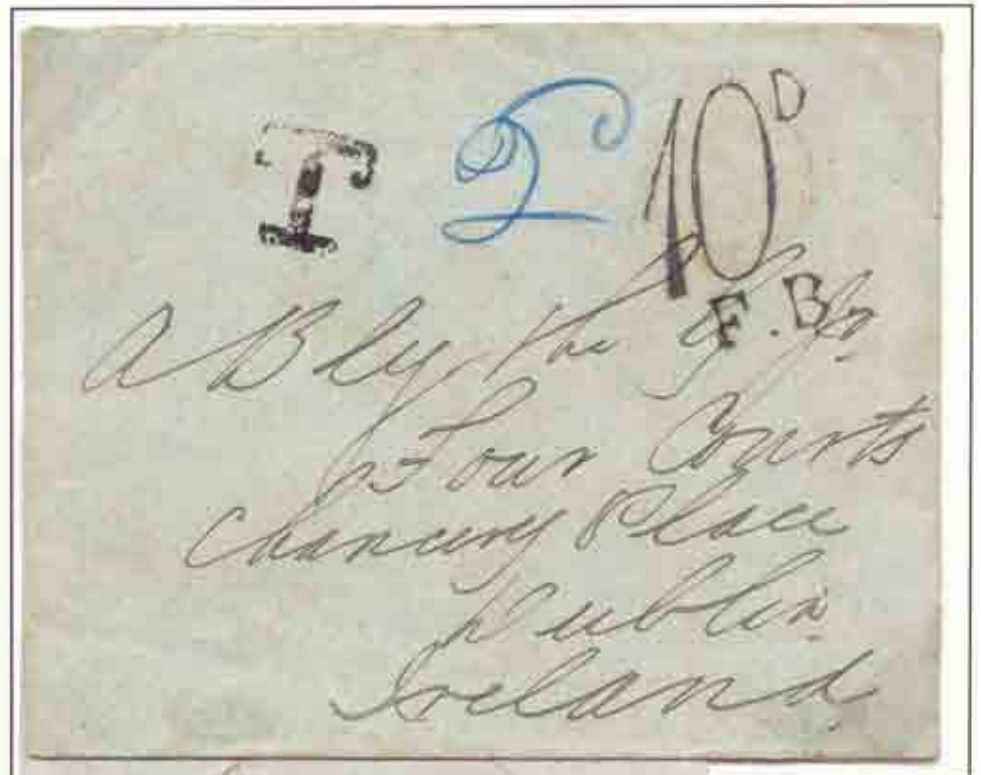 T 10D
F.B.
A Bly the
Four Courts
Chancery Place
Dublin
Ireland